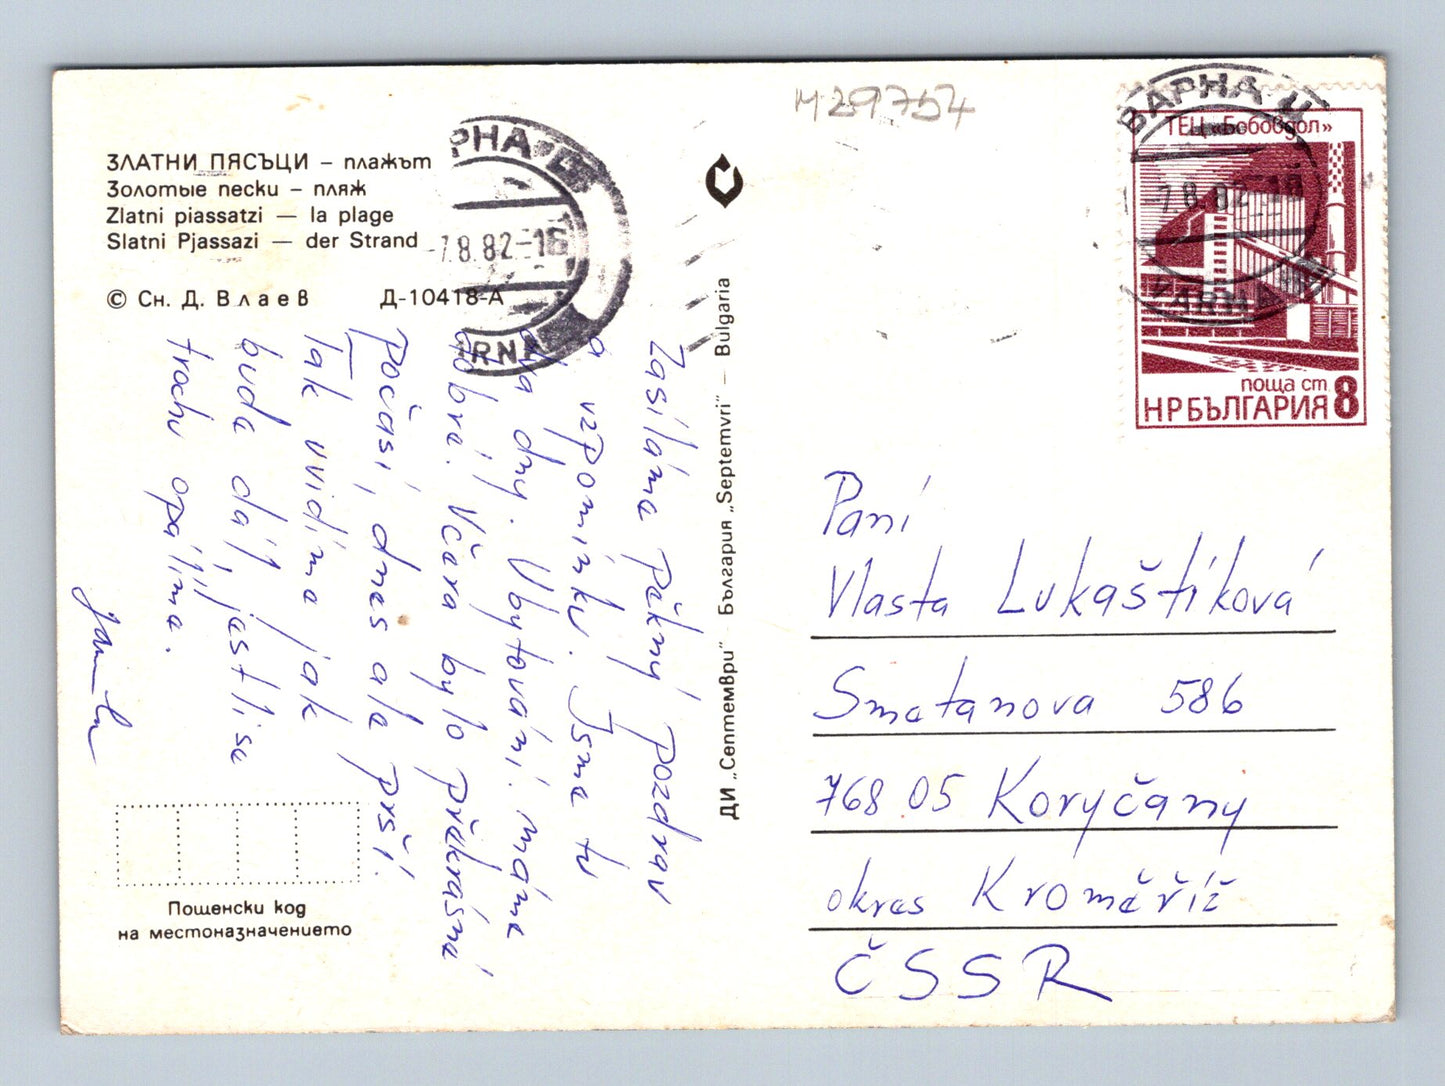 M29754
ЗЛАТНИ ПЯСЪЦИ – плажът
Золотые пески – пляж
Zlatni piassatzi — la plage
Slatni Pjassazi — der Strand
© Сн. Д. Влаев Д-10418-А
РНА Ц
-7.8.82-16
ARNA
Zasíláme pěkný pozdrav
a vzpomínku. Jsme tu
dny. Ubytování máme
dobré. Včera bylo překrásné
počasí, dnes ale prší.
Tak uvidíme jak
bude dál, jestli se
trochu opálíme.
Пощенски код
на местоназначението
ДИ „Септември" - България „Septemvri" — Bulgaria
ВАРНА Ц
-7.8.82-16
VARNA
ТЕЦ «Бобовдол»
поща ст 8
НР БЪЛГАРИЯ
Paní
Vlasta Lukaštíková
Smetanova 586
768 05 Koryčany
okres Kroměříž
ČSSR